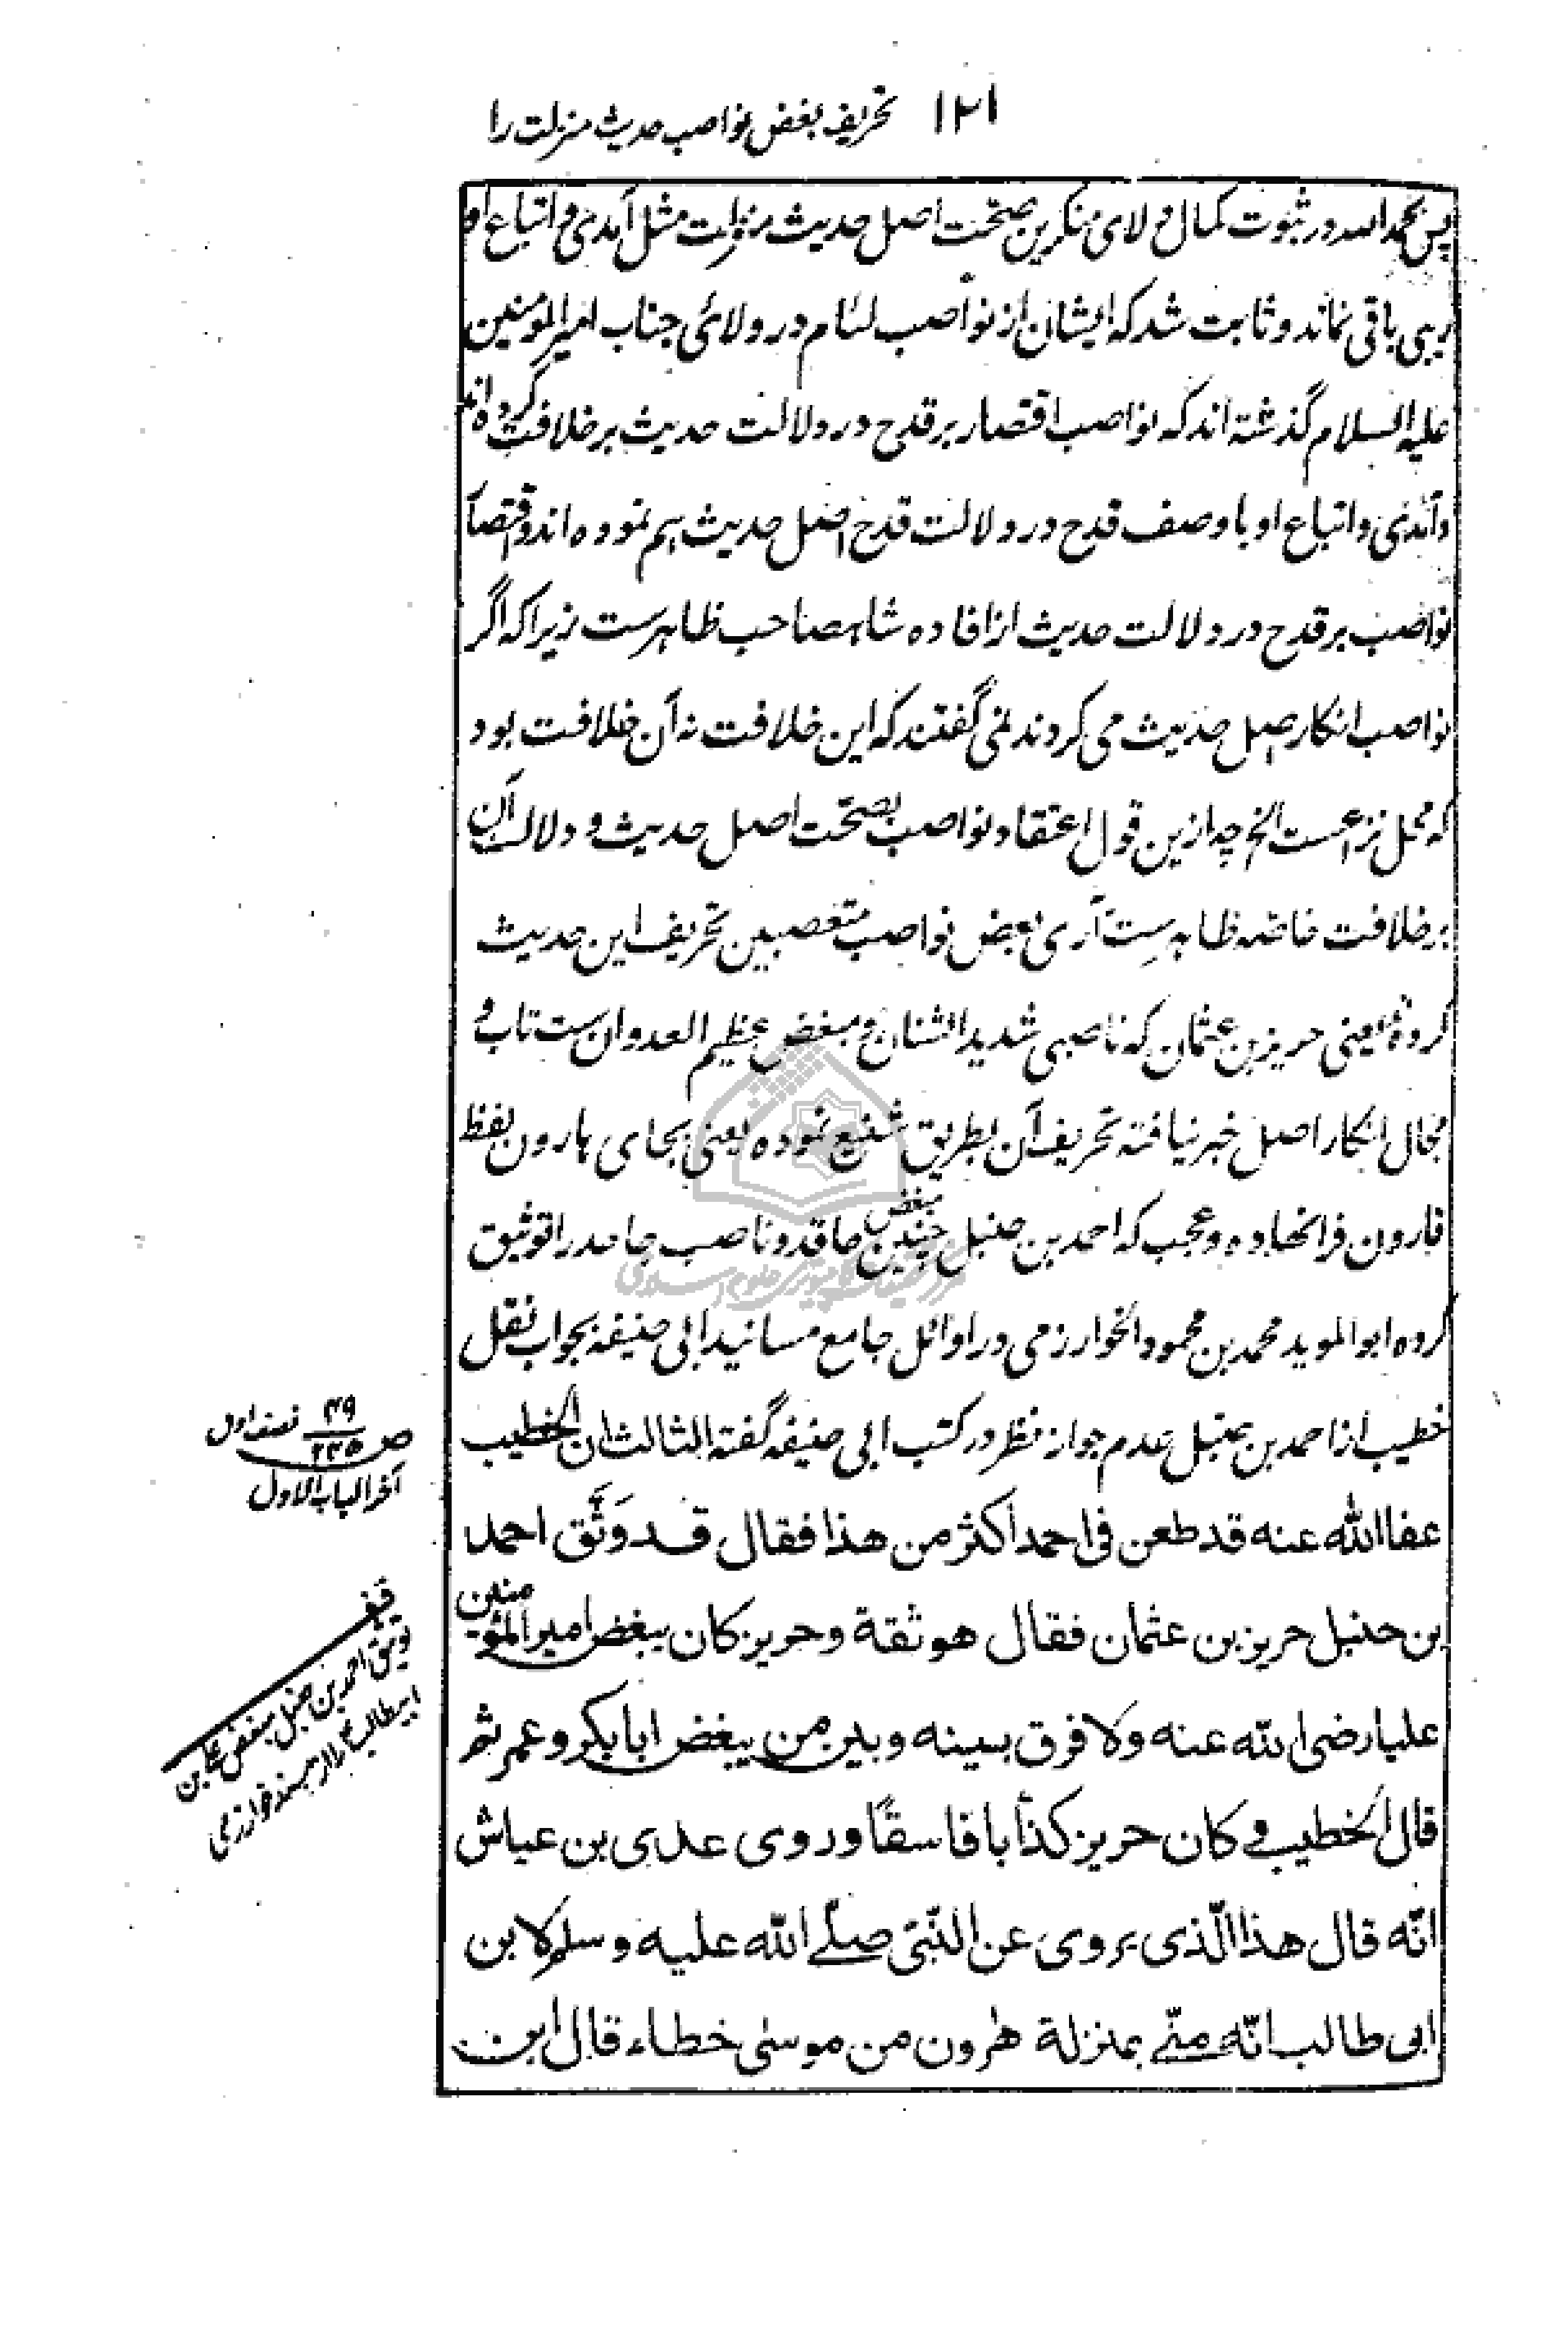 ۱۲۱ تحریف بعض نواصب حدیث منزلت را
پس بحمد الله در ثبوت کمال ولای منکرین صحّت اصل حدیث منزلت مثل آمدی و اتباع او
ریبی باقی نماند و ثابت شد که ایشان از نواصب لئام در ولائی جناب امیرالمومنین
علیه السلام گذشته اند که نواصب اقتصار بر قدح در دلالت حدیث بر خلافت کرده اند
و آمدی و اتباع او با وصف قدح در دلالت قدح اصل حدیث هم نموده اند و اقتصار
نواصب بر قدح در دلالت حدیث از افاده شاهصاحب ظاهرست زیرا که اگر
نواصب انکار اصل حدیث می کردند نمی گفتند که این خلافت نه آن خلافت بود
که محل نزاعست الخ چه ازین قول اعتقاد نواصب بصحّت اصل حدیث و دلالت آن
بر خلافت خاصه ظاهرست آری بعض نواصب متعصبین تحریف این حدیث
کرده یعنی حریز بن عثمان که ناصبی شدید الشنان و مبغض عظیم العدوان ست تاب و
مجال انکار اصل خبر نیافته تحریف آن بطریق شنیع نموده یعنی بجای هارون لفظ
قارون فرانهاده و عجب که احمد بن حنبل چنین مبغض حاقد و ناصب جاحد را توثیق
کرده ابو الموید محمد بن محمود الخوارزمی در اوائل جامع مسانید ابی حنیفه بجواب نقل
خطیب از احمد بن حنبل عدم جواز نظر در کتب ابی حنیفه گفته الثالث ان الخطیب
عفا الله عنه قد طعن فی احمد اکثر من هذا فقال قد وَثَّق احمد
بن حنبل حریز بن عثمان فقال هو ثقة و حریز کان یبغض امیر المؤمنین
علیا رضی الله عنه ولا فرق بینه وبین من یبغض ابا بکر و عمر ثم
قال الخطیب و کان حریز کذّابا فاسقًا و روی عدی بن عیاش
انّه قال هذا الّذی یروی عن النّبیّ صلّے الله علیه وسلم لابن
ابی طالب انّه منّے بمنزلة هٰرون من موسٰی خطاء قال ابن
ص ۴۹/۲۳۵ نصف اول
آخر الباب الاول
قف
توثیق احمد بن حنبل مبغض علی بن
ابیطالب را از مسند خوارزمی